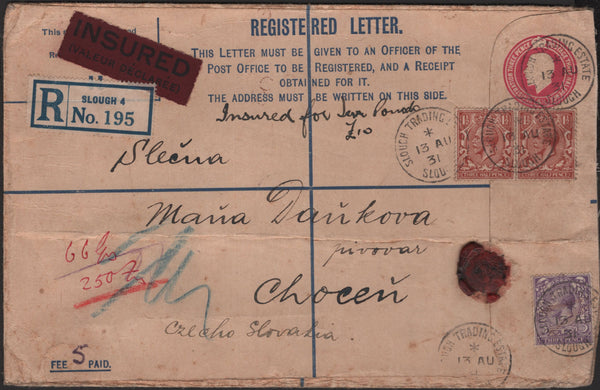 REGISTERED LETTER.
THIS LETTER MUST BE GIVEN TO AN OFFICER OF THE
POST OFFICE TO BE REGISTERED, AND A RECEIPT
OBTAINED FOR IT.
THE ADDRESS MUST BE WRITTEN ON THIS SIDE.
This
INSURED
(VALEUR DÉCLARÉE)
R
SLOUGH 4
No. 195
Insured for Ten Pounds
£10
SLOUGH TRADING
13 AU
31
Slečna
Maňa Daňkova
pivovar
Choceň
Czecho Slovakia
250
THREE PENCE
TRADING ESTATE
13 AU
FEE 5 PAID.